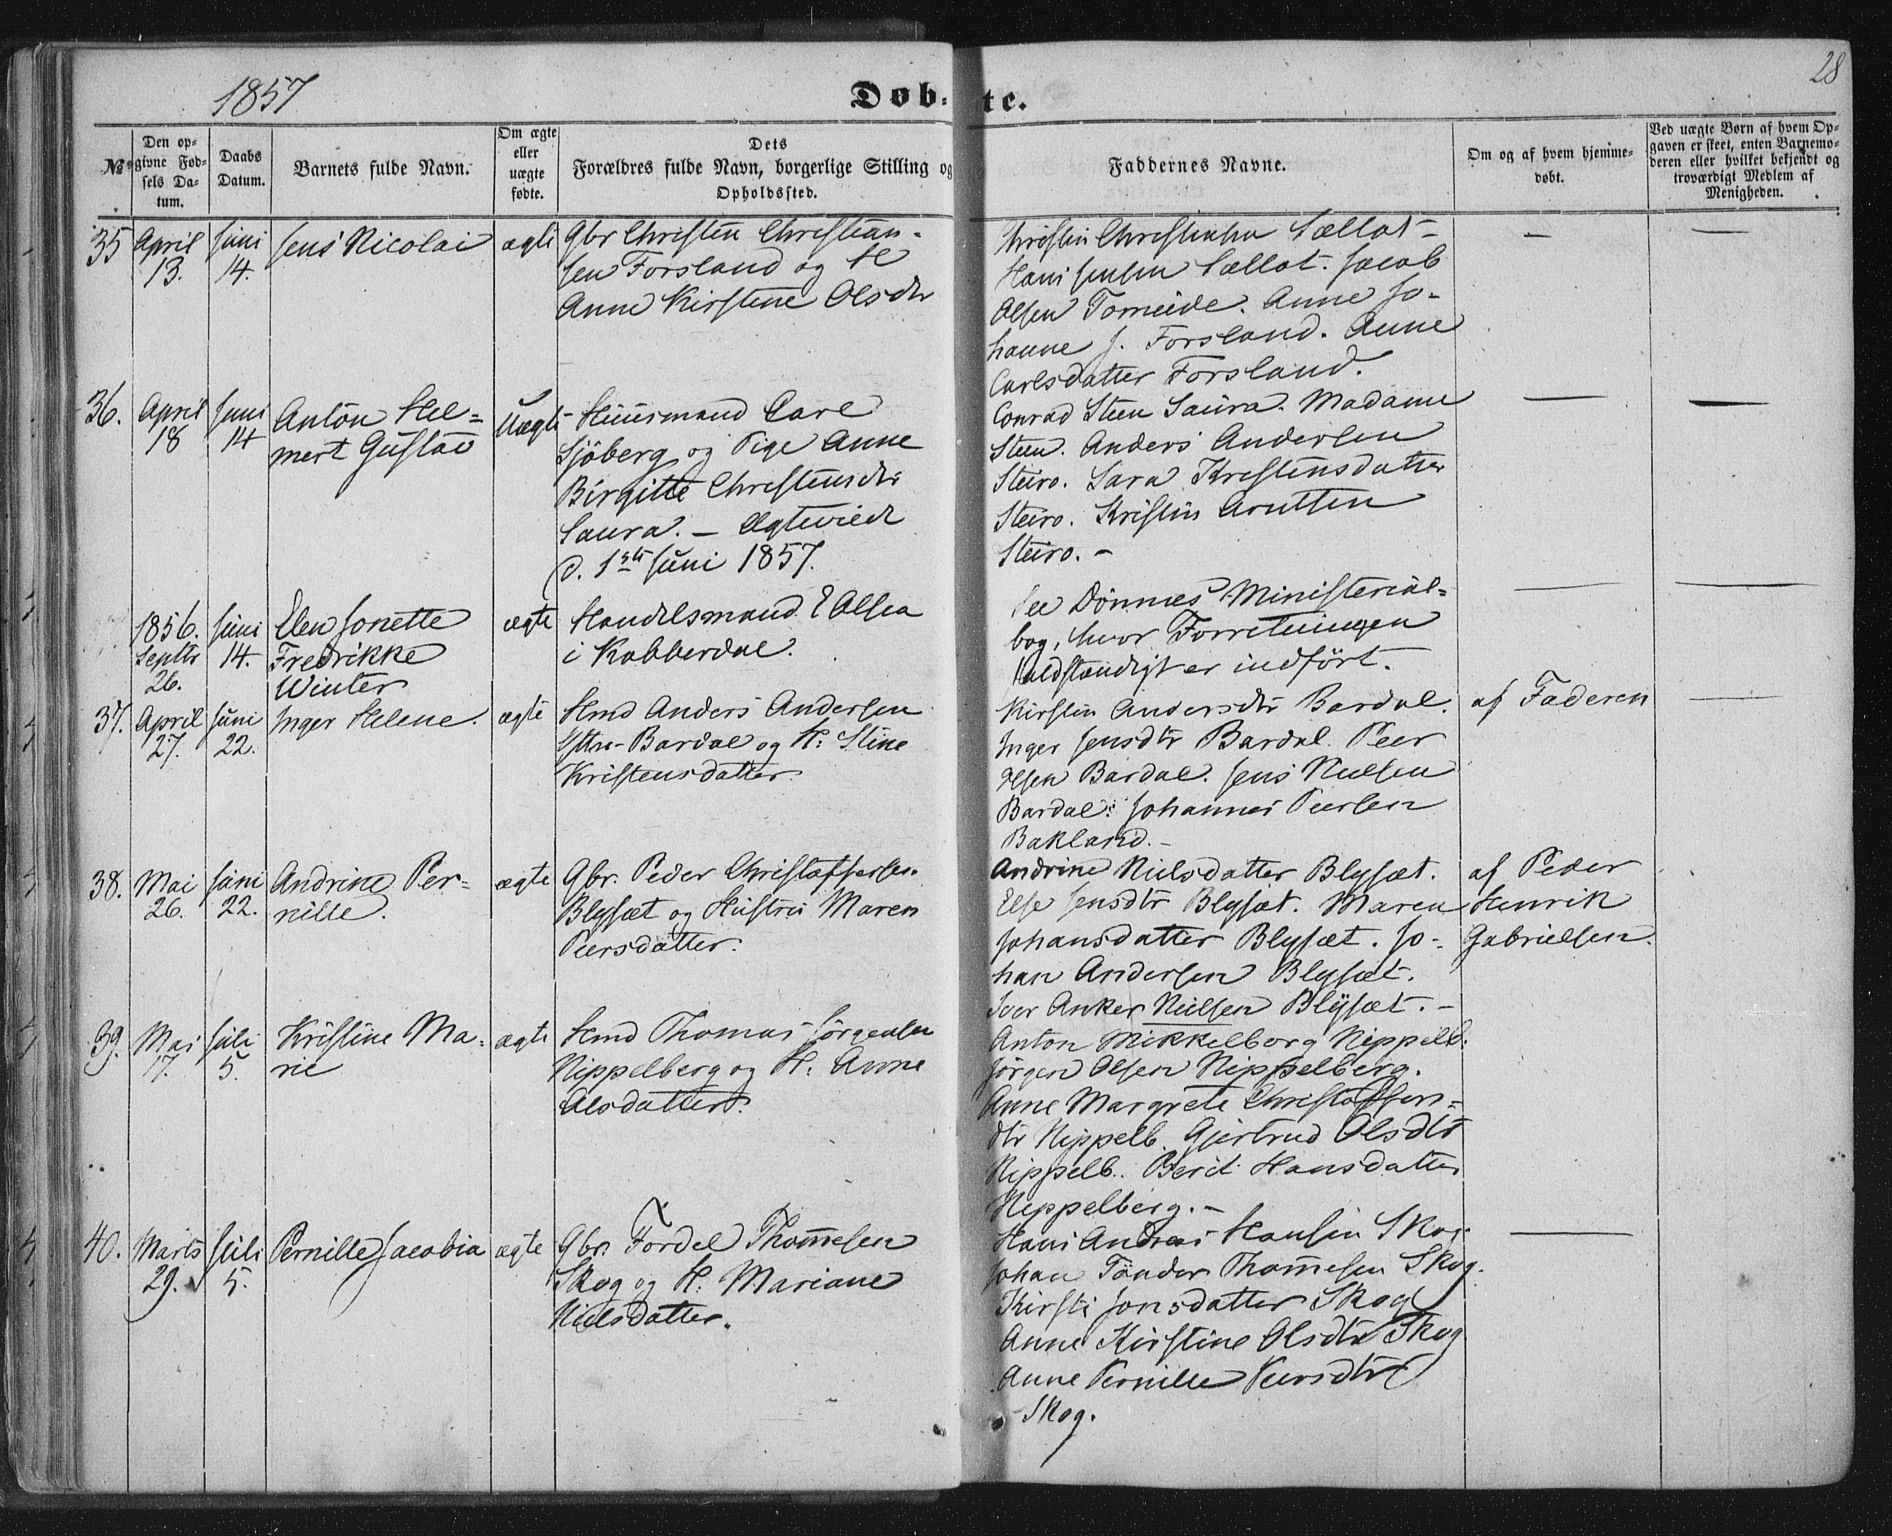 1857
Døb-te.
28
№
Den op-
givne Fød-
sels Da-
tum.
Daabs
Datum.
Barnets fulde Navn.
Om ægte
eller
uægte
fødte.
Dets
Forældres fulde Navn, borgerlige Stilling og
Opholdssted.
Faddernes Navne.
Om og af hvem hjemme-
døbt.
Ved uægte Børn af hvem Op-
gaven er skeet, enten Barnemo-
deren eller hvilket bekjendt og
troværdigt Medlem af
Menigheden.
35
April
13.
Juni
14.
Jens Nicolai
ægte
Gbr Christen Christian-
sen Forsland og H
Anne Kirstine Olsdtr
Christen Christensen Sællat-
Hans Jensen Sællat. Jacob
Olsen Torneide. Anne Jo-
hanne J. Forsland. Anne
Carlsdatter Forsland.
—
—
36.
April
18
Juni
14
Anton Hel-
mert Gustav
Uægte
Huusmand Carl
Sjöberg og Pige Anne
Birgitte Christensdtr
Saura. — Ægteviede
d. 1ste Juni 1857.
Conrad Steen Saura. Madame
Steen. Anders Andersen
Steiro. Sara Kristensdatter
Steiro. Kristen Arntsen
Steiro. -
—
—
1856.
Septbr
26.
Juni
14.
Elen Jonette
Fredrikke
Winter
ægte
Handelsmand E Olsen
i Kobberdal.
See Dönnæs Ministerial-
bog, hvor Forretningen
fuldstændigt er indfört.
—
—
37.
April
27.
Juni
22.
Inger Helene.
ægte
Hmd Anders Andersen
Yttre-Bardal og H: Stine
Kristensdatter
Kirsten Andersdtr Bardal.
Inger Jensdtr Bardal. Peer
Olsen Bardal. Jens Nielsen
Bardal: Johannes Peersen
Bakland. -
af Faderen
—
38.
Mai
26.
Juni
22.
Andrine Per-
nille.
ægte
Gbr. Peder Christoffersen
Blysæt og Hustru Maren
Peersdatter.
Andrine Nielsdatter Blysæt.
Else Jensdtr Blysæt. Maren
Johansdatter Blysæt. Jo-
han Andersen Blysæt.
Iver Anker Nielsen Blysæt. -
af Peder
Henrik
Gabrielsen.
39.
Mai
17.
Juli
5.
Kristine Ma-
rie
ægte
Hmd Thomas Jörgensen
Nippelberg og H: Anne
Olsdatter.
Anton Mikkelborg Nippelb:
Jörgen Olsen Nippelberg.
Anne Margrete Christoffers-
dtr Nippelb. Gjertrud Olsdtr
Nippelb. Berit Hansdatter
Nippelberg. -
40.
Marts
29.
Juli
5.
Pernille Jacobia
ægte
Gbr. Fordel Thomesen
Skog og H: Mariane
Nielsdatter.
Hans Andreas Hansen Skog
Johan Tönder Thomesen Skog.
Kirsti Jonsdatter Skog
Anne Kirstine Olsdtr Skog
Anne Pernille Peersdtr
Skog.
—